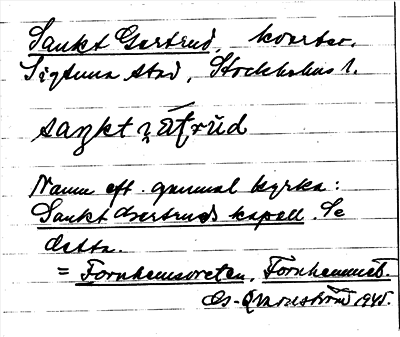 Sankt Gertrud, kvarter.
Sigtuna stad, Stockholms l.
Namn eft. gammal kyrka:
Sankt Gertruds kapell. Se
detta.
= Fornhemsvreten, Fornhemmet.
1945.